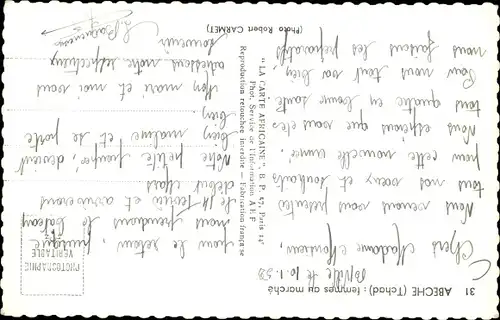 31 ABECHE (Tchad) : femmes au marché
le 10.1.59
Chers Madame et Monsieur,
Nous venons vous présenter
tous nos voeux et
pour cette nouvelle année.
Nous espérons que vous êtes
tous quatre en bonne santé
Pour nous tout va bien,
nous faisons les préparatifs
"LA CARTE AFRICAINE", B. P. 57, Paris 14e
Photo Service de l'Information A E F
Reproduction retouchée interdite - Fabrication française
(Photo Robert CARMET)
PHOTOGRAPHIE
VERITABLE
pour le retour, puisque
nous prendrons le bateau
le 18 février et arriverons
début Mars
Notre petite "mémé" devient
bien maligne et se porte
bien
Mon mari et moi vous
adressons notre respectueux
souvenir